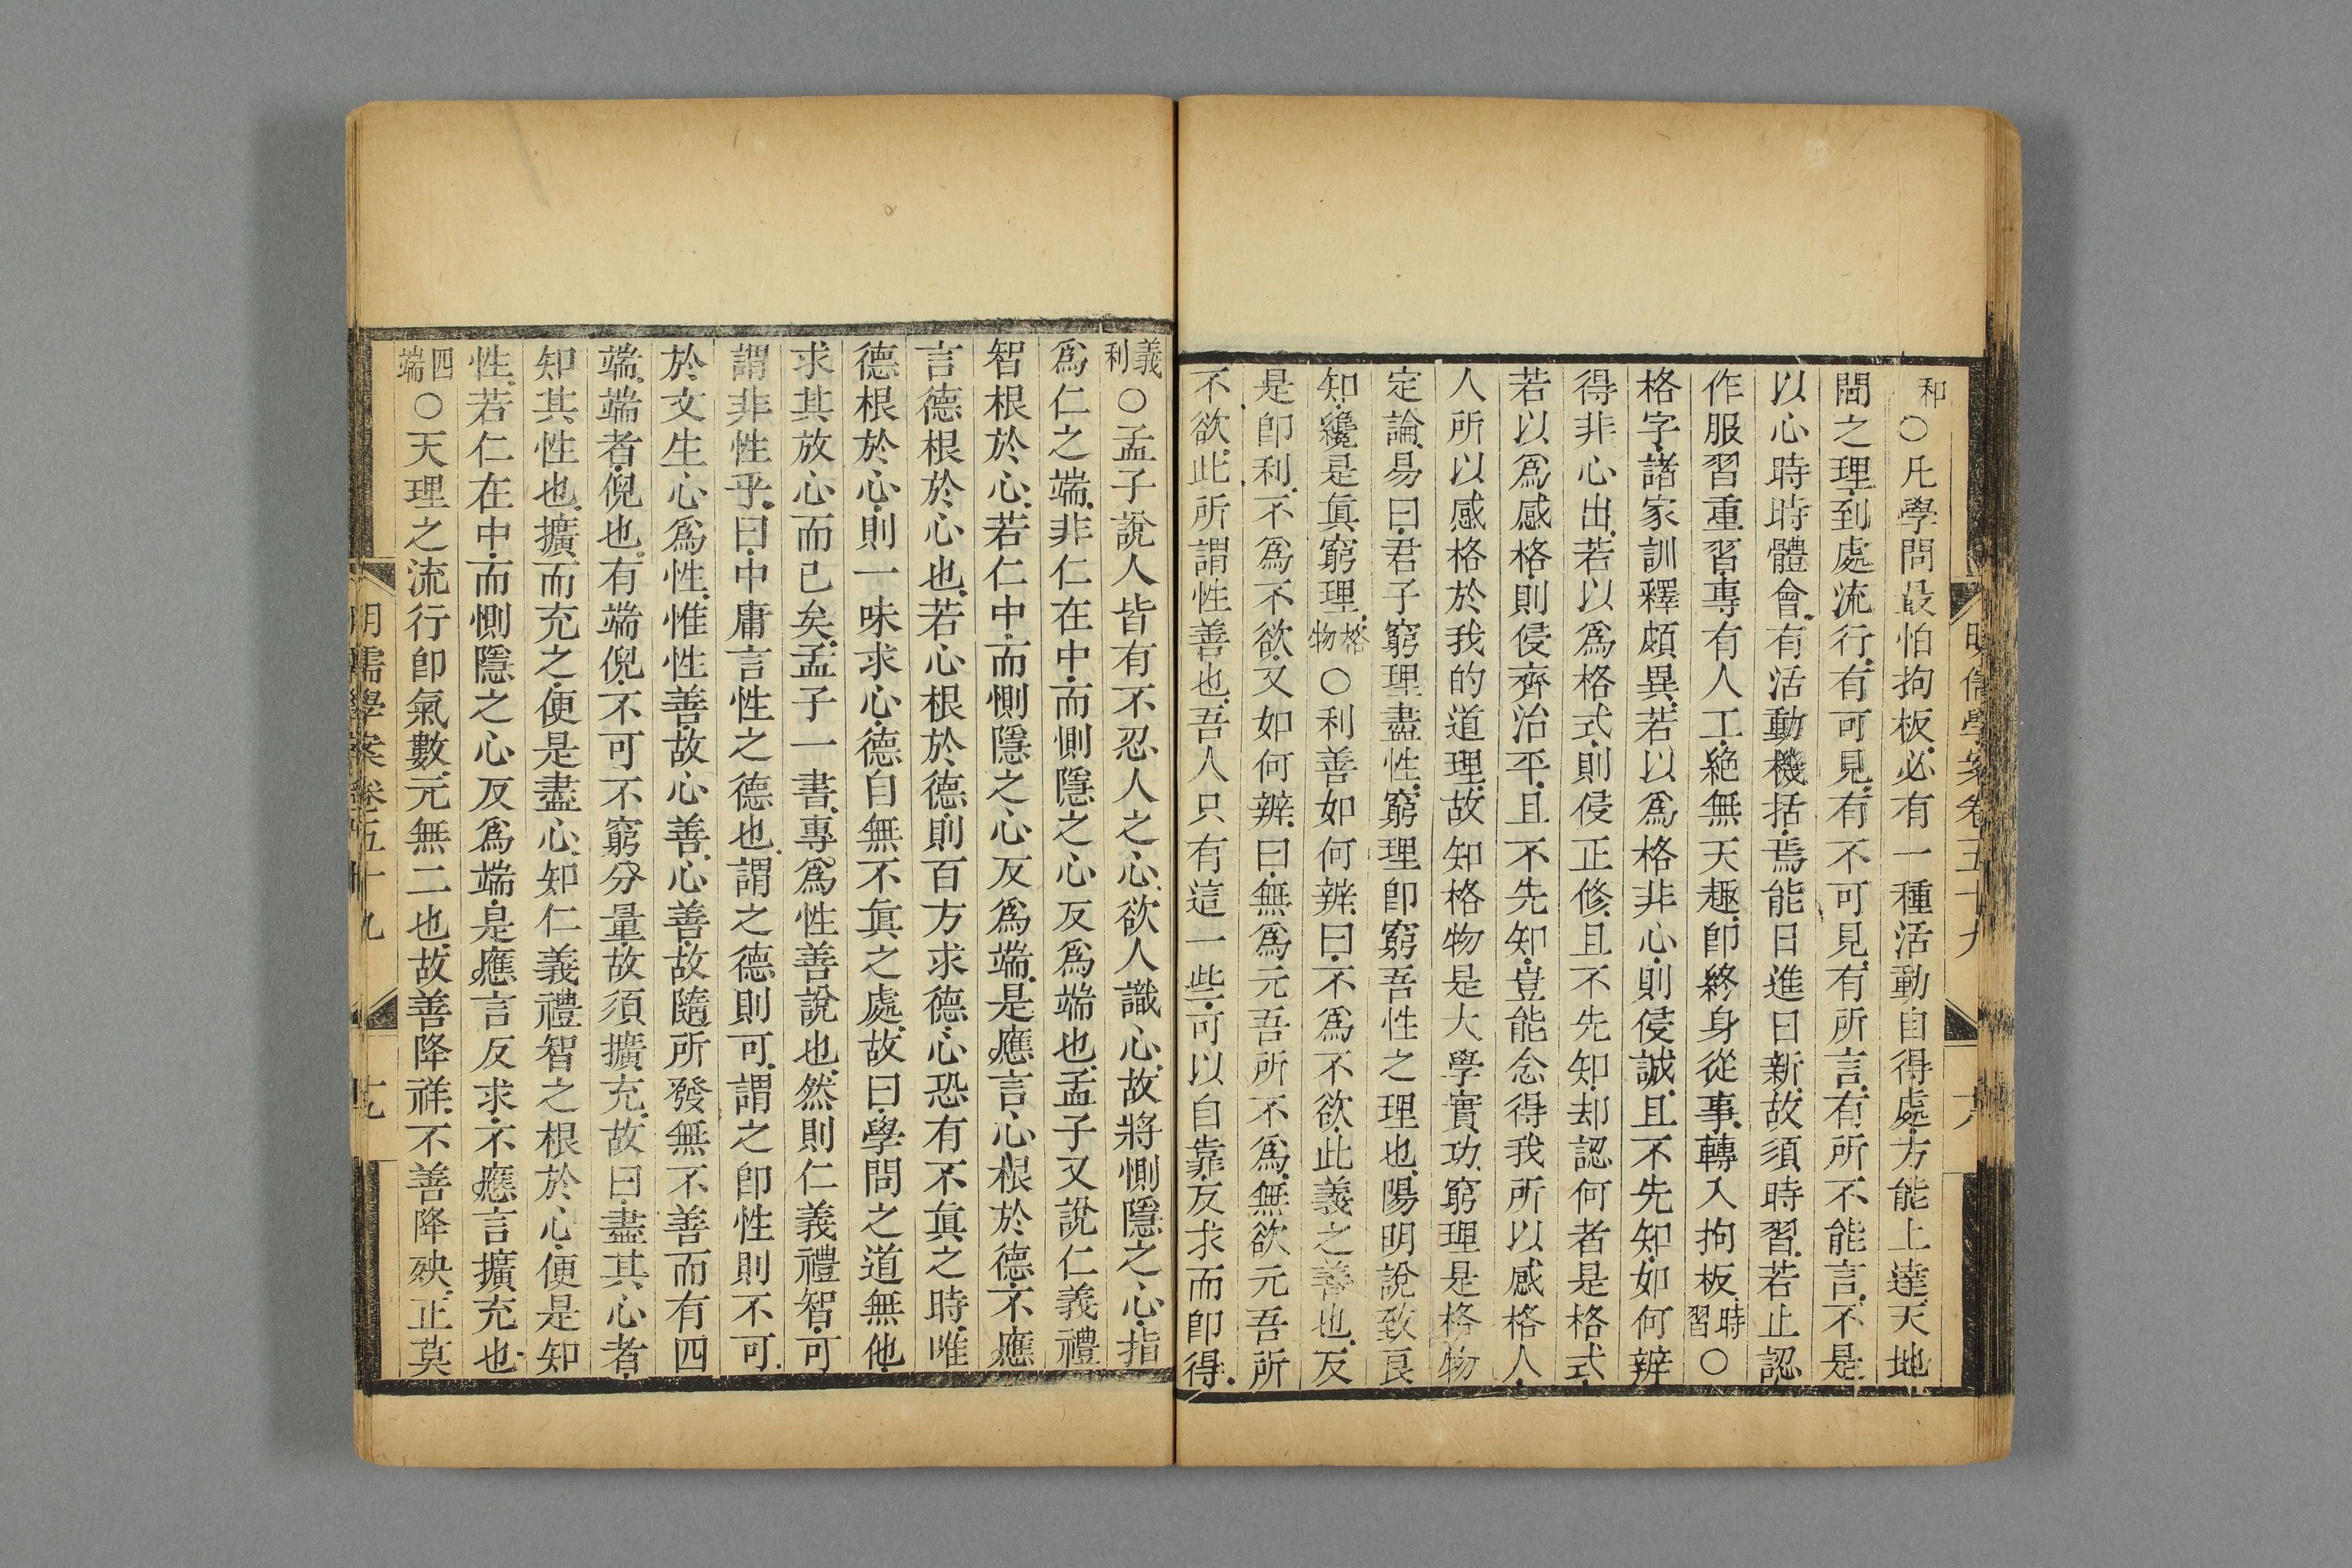 明儒學案卷五十九 六
和○凡學問最怕拘板必有一種活動自得處方能上達天地
間之理到處流行有可見有不可見有所言有所不能言不是
以心時時體會有活動機括焉能日進日新故須時習若止認
作服習重習專有人工絶無天趣卽終身從事轉入拘板時習○
格字諸家訓釋頗異若以爲格非心則侵誠且不先知如何辨
得非心出若以爲格式則侵正修且不先知却認何者是格式
若以爲感格則侵齊治平且不先知豈能念得我所以感格人
人所以感格於我的道理故知格物是大學實功窮理是格物
定論易曰君子窮理盡性窮理卽窮吾性之理也陽明說致良
知纔是眞窮理格物○利善如何辨曰不爲不欲此義之善也反
是卽利不爲不欲又如何辨曰無爲元吾所不爲無欲元吾所
不欲此所謂性善也吾人只有這一些可以自靠反求而卽得
義利○孟子說人皆有不忍人之心欲人識心故將惻隱之心指
爲仁之端非仁在中而惻隱之心反爲端也孟子又說仁義禮
智根於心若仁中而惻隱之心反爲端是應言心根於德不應
言德根於心也若心根於德則百方求德心恐有不眞之時唯
德根於心則一味求心德自無不眞之處故曰學問之道無他
求其放心而已矣孟子一書專爲性善說也然則仁義禮智可
謂非性乎曰中庸言性之德也謂之德則可謂之卽性則不可
於文生心爲性惟性善故心善心善故隨所發無不善而有四
端端者倪也有端倪不可不窮分量故須擴充故曰盡其心者
知其性也擴而充之便是盡心知仁義禮智之根於心便是知
性若仁在中而惻隱之心反爲端是應言反求不應言擴充也
四端○天理之流行卽氣數元無二也故善降祥不善降殃正莫
明儒學案卷五十九